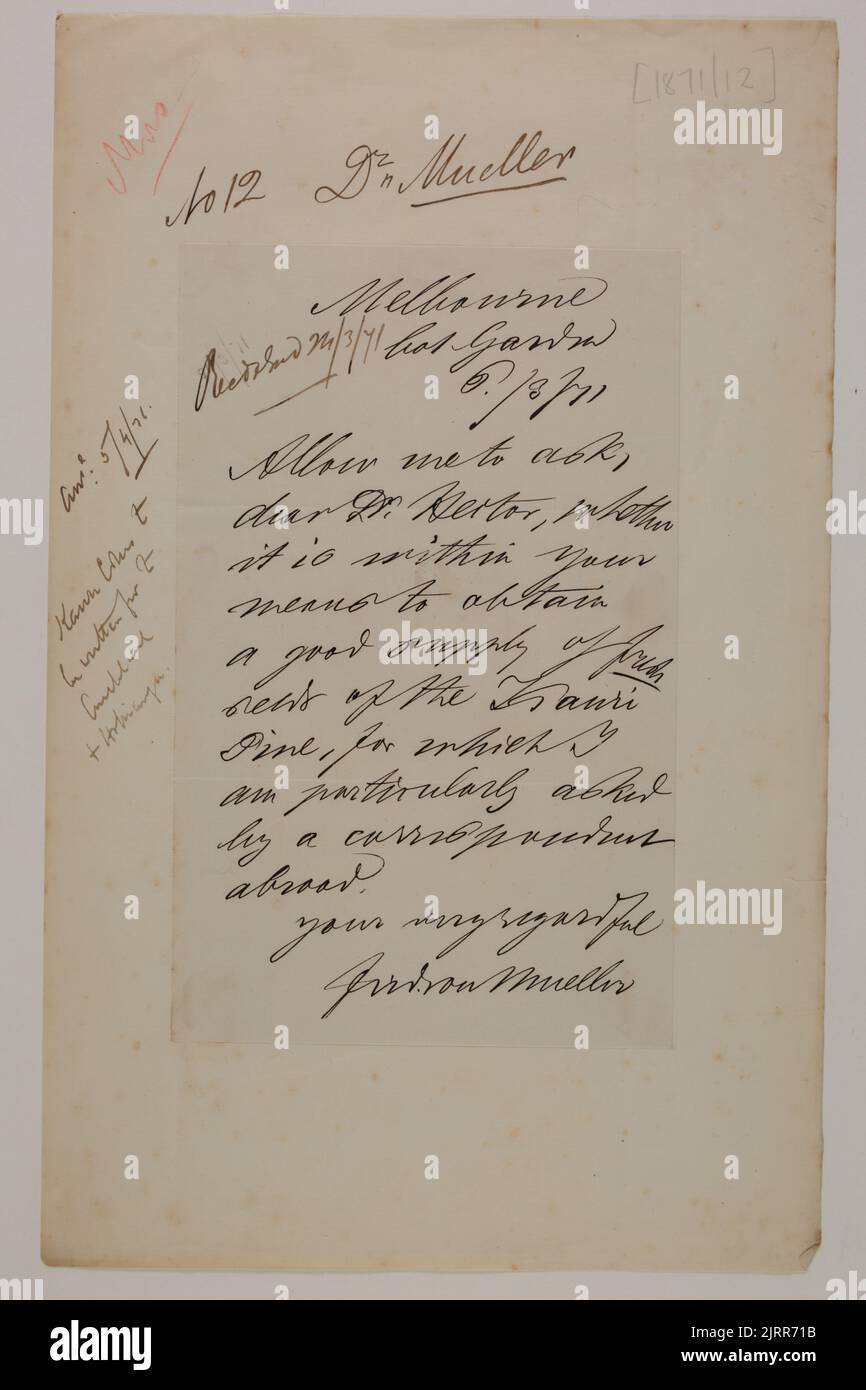 [1871/12]
Mus
No 12 Dr. Mueller
Melbourne
bot Garden
Received /3/71
6./3/71
Allow me to ask,
dear Dr. Hector, whether
it is within your
means to obtain
a good supply of fresh
seeds of the Kauri
Pine, for which I
am particularly asked
by a correspondent
abroad.
your very regardful
Ferd. von Mueller
Ansd. 5/4/71.
to
be written for to
Auckland
+ Hokianga.
alamy
alamy
alamy
Image ID: 2JRR71B
www.alamy.com